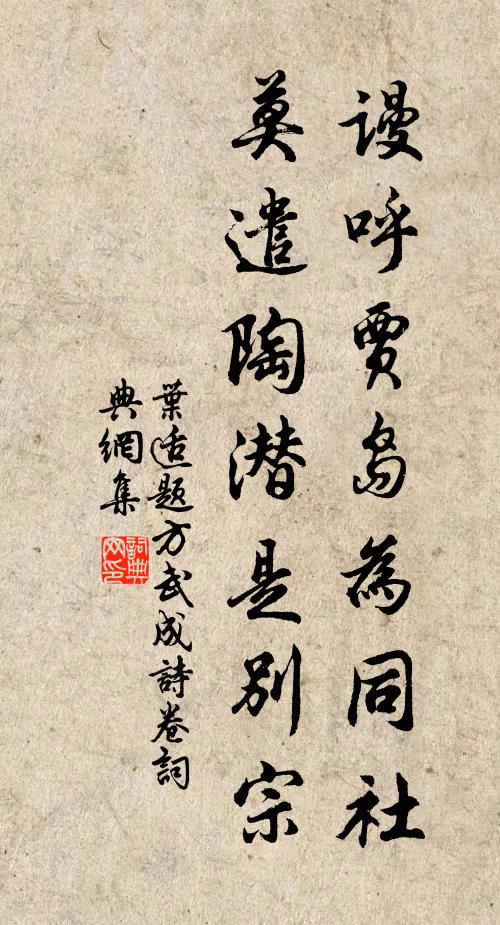 謾呼賈島為同社
莫遣陶潛是別宗
葉适題方武成詩卷詞
典網集
詞典
网印